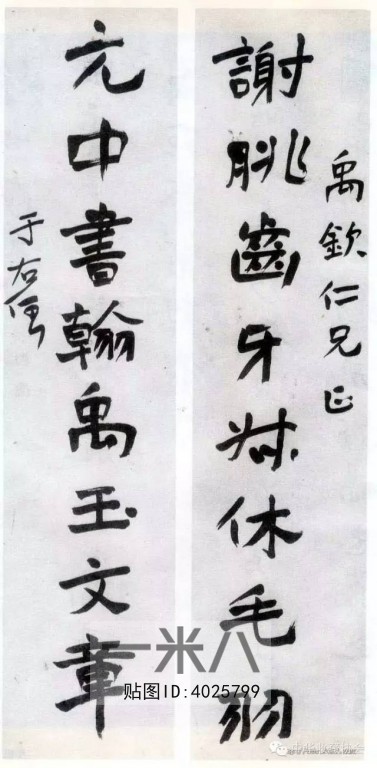 禹欽仁兄正
謝朓齒牙叔休毛羽
元中書翰禹玉文章
于右任
一米八
贴图ID:4025799